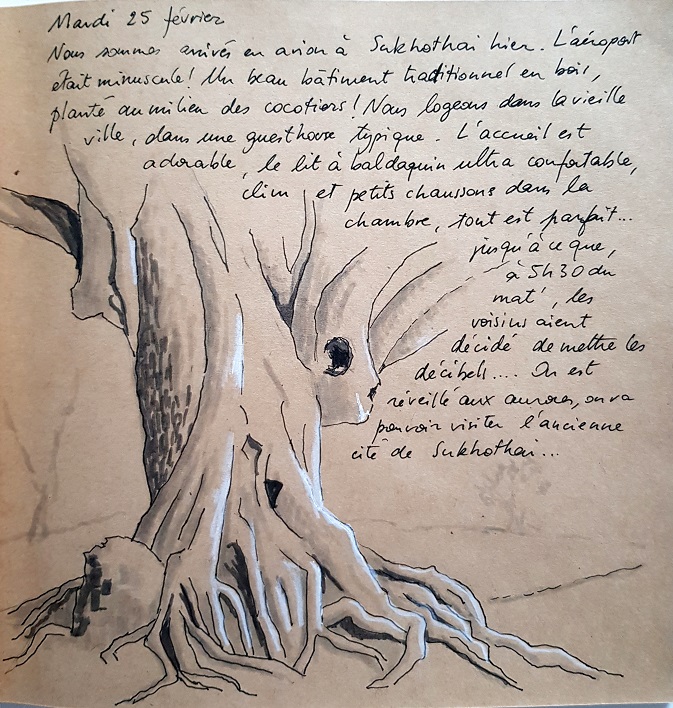 Mardi 25 février
Nous sommes arrivés en avion à Sukhothai hier. L'aéroport
était minuscule! Un beau bâtiment traditionnel en bois,
planté au milieu des cocotiers! Nous logeons dans la vieille
ville, dans une guesthouse typique. L'accueil est
adorable, le lit à baldaquin ultra confortable,
clim et petits chaussons dans la
chambre, tout est parfait...
jusqu'à ce que,
à 5h30 du
mat', les
voisins aient
décidé de mettre les
décibels.... On est
réveillé aux aurores, on va
pouvoir visiter l'ancienne
cité de Sukhothai...